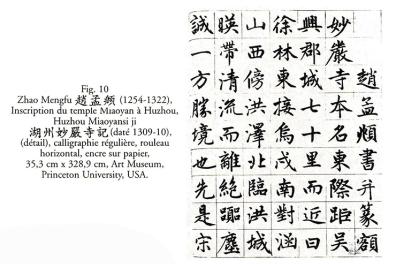 Fig. 10
Zhao Mengfu 趙孟頫 (1254-1322),
Inscription du temple Miaoyan à Huzhou,
Huzhou Miaoyansi ji
湖州妙嚴寺記(daté 1309-10),
(détail), calligraphie régulière, rouleau
horizontal, encre sur papier,
35,3 cm x 328,9 cm, Art Museum,
Princeton University, USA.
趙孟頫書并篆額
妙嚴寺本名東際距吳
興郡城七十里而近曰
徐林東接烏戍南對涵
山西傍洪澤北臨洪城
暎帶清流而離絕囂塵
誠一方勝境也先是宋